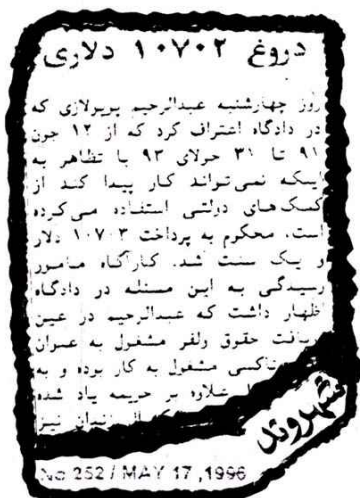 دروغ ۱۰۷۰۲ دلاری
روز چهارشنبه عبدالرحیم پریرلازی که
در دادگاه اعتراف کرد که از ۱۲ جون
۹۱ تا ۳۱ جولای ۹۳ با تظاهر به
اینکه نمی‌تواند کار پیدا کند از
کمک‌های دولتی استفاده می‌کرده
است، محکوم به پرداخت ۱۰۷۰۳ دلار
و یک سنت شد. کارآگاه مامور
رسیدگی به این مسئله در دادگاه
اظهار داشت که عبدالرحیم در عین
دریافت حقوق ولفر مشغول به عنوان
تاکسی مشغول به کار بوده و به
علاوه بر جریمه یاد شده
زندان نیز
شهروند
No 252 / MAY 17 ,1996